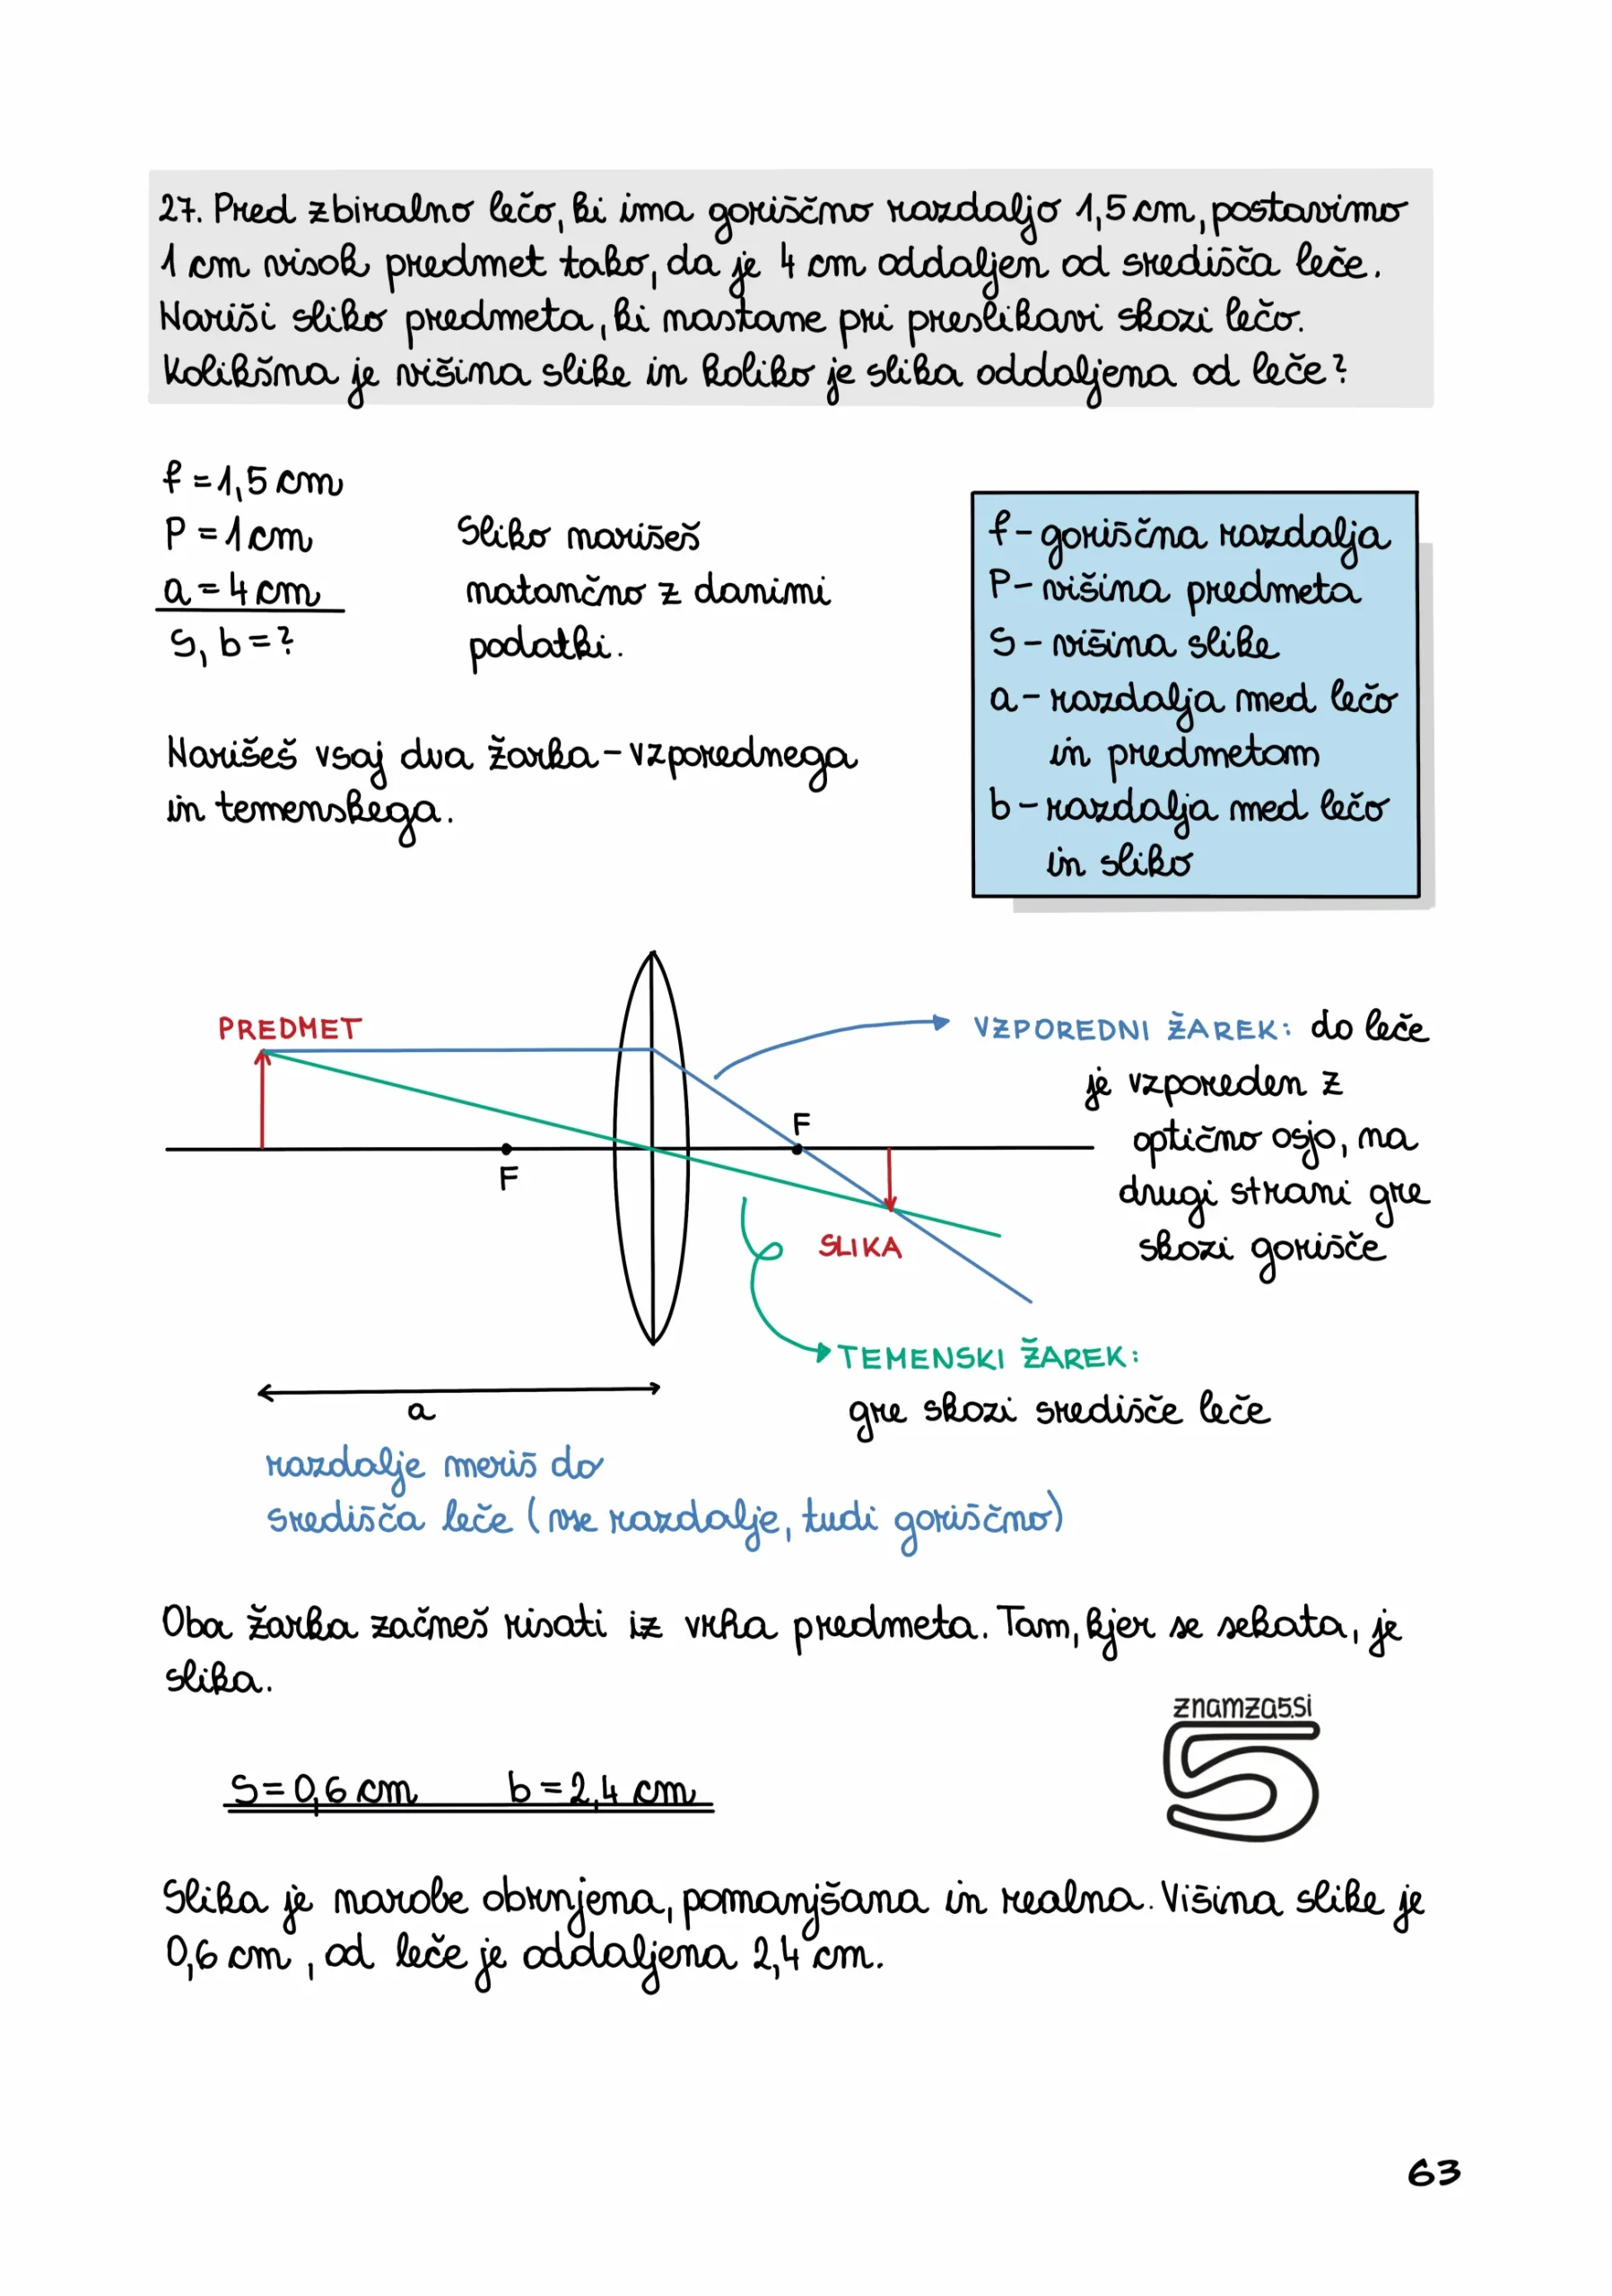 27. Pred zbiralno lečo, ki ima goriščno razdaljo 1,5 cm, postavimo
1 cm visok predmet tako, da je 4 cm oddaljen od središča leče.
Nariši sliko predmeta, ki nastane pri preslikavi skozi lečo.
Kolikšna je višina slike in koliko je slika oddaljena od leče?
f = 1,5 cm
P = 1 cm
a = 4 cm
S, b = ?
Sliko narišeš
natančno z danimi
podatki.
f - goriščna razdalja
P - višina predmeta
S - višina slike
a - razdalja med lečo
in predmetom
b - razdalja med lečo
in sliko
Narišeš vsaj dva žarka - vzporednega
in temenskega.
PREDMET
VZPOREDNI ŽAREK: do leče
je vzporeden z
optično osjo, na
drugi strani gre
skozi gorišče
F
F
SLIKA
TEMENSKI ŽAREK:
gre skozi središče leče
a
razdalje meriš do
središča leče (vse razdalje, tudi goriščno)
Oba žarka začneš risati iz vrha predmeta. Tam, kjer se sekata, je
slika.
znamza5.si
5
S = 0,6 cm b = 2,4 cm
Slika je narobe obrnjena, pomanjšana in realna. Višina slike je
0,6 cm, od leče je oddaljena 2,4 cm.
63